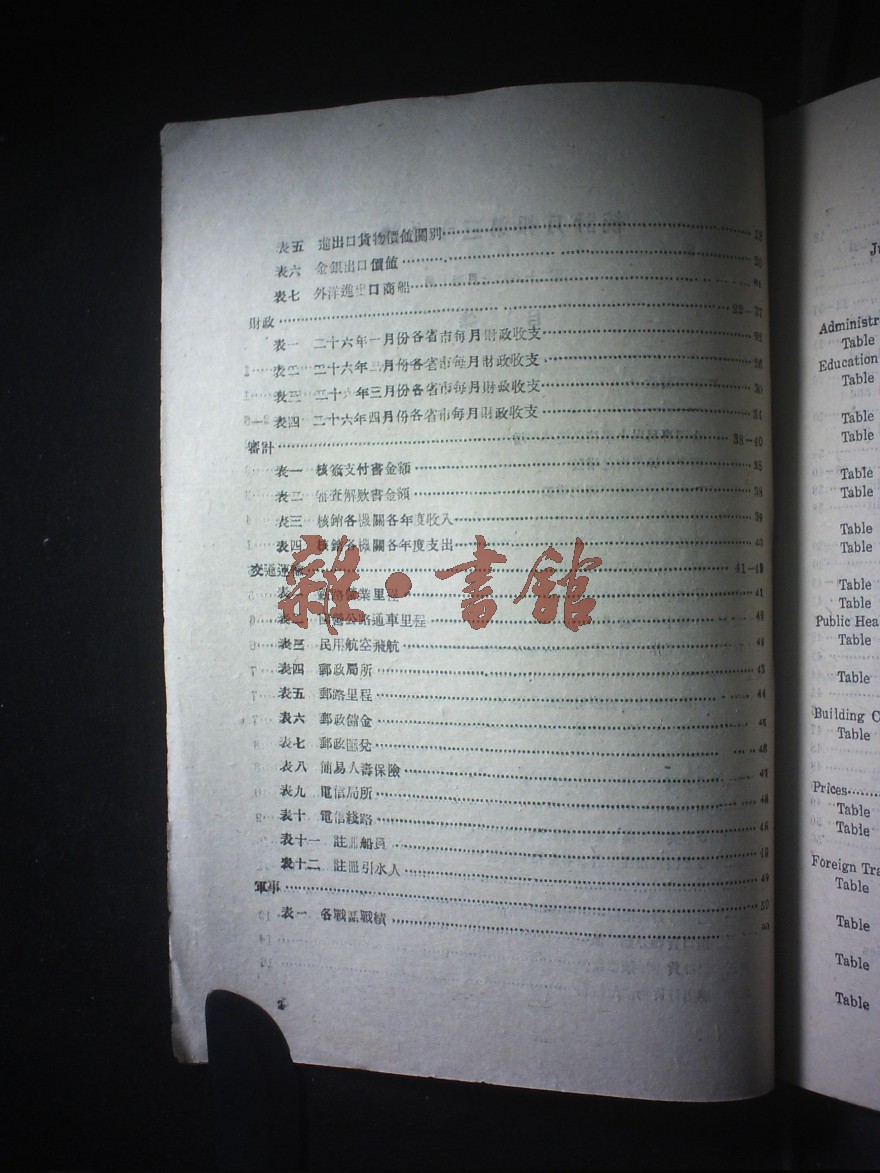 表五 進出口貨物價值關別
表六 金銀出口價值
表七 外洋進出口商船
財政 22-37
表一 二十六年一月份各省市每月財政收支
表二 二十六年二月份各省市每月財政收支 26
表三 二十六年三月份各省市每月財政收支 30
表四 二十六年四月份各省市每月財政收支 34
審計 38-40
表一 核簽支付書金額 38
表二 審查解款書金額 38
表三 核銷各機關各年度收入 39
表四 核銷各機關各年度支出 40
交通運輸 41-49
表一 鐵路營業里程 41
表二 公路通車里程
表三 民用航空飛航
表四 郵政局所 43
表五 郵路里程 44
表六 郵政儲金
表七 郵政匯兌 46
表八 簡易人壽保險 47
表九 電信局所 48
表十 電信綫路 48
表十一 註冊船員 49
表十二 註冊引水人 49
軍事 50
表一 各戰區戰績
2
雜·書館
Administr
Table
Education
Table
Table
Table
Table
Table
Table
Table
Table
Table
Public Hea
Table
Table
Building C
Table
Prices
Table
Table
Foreign Tra
Table
Table
Table
Table